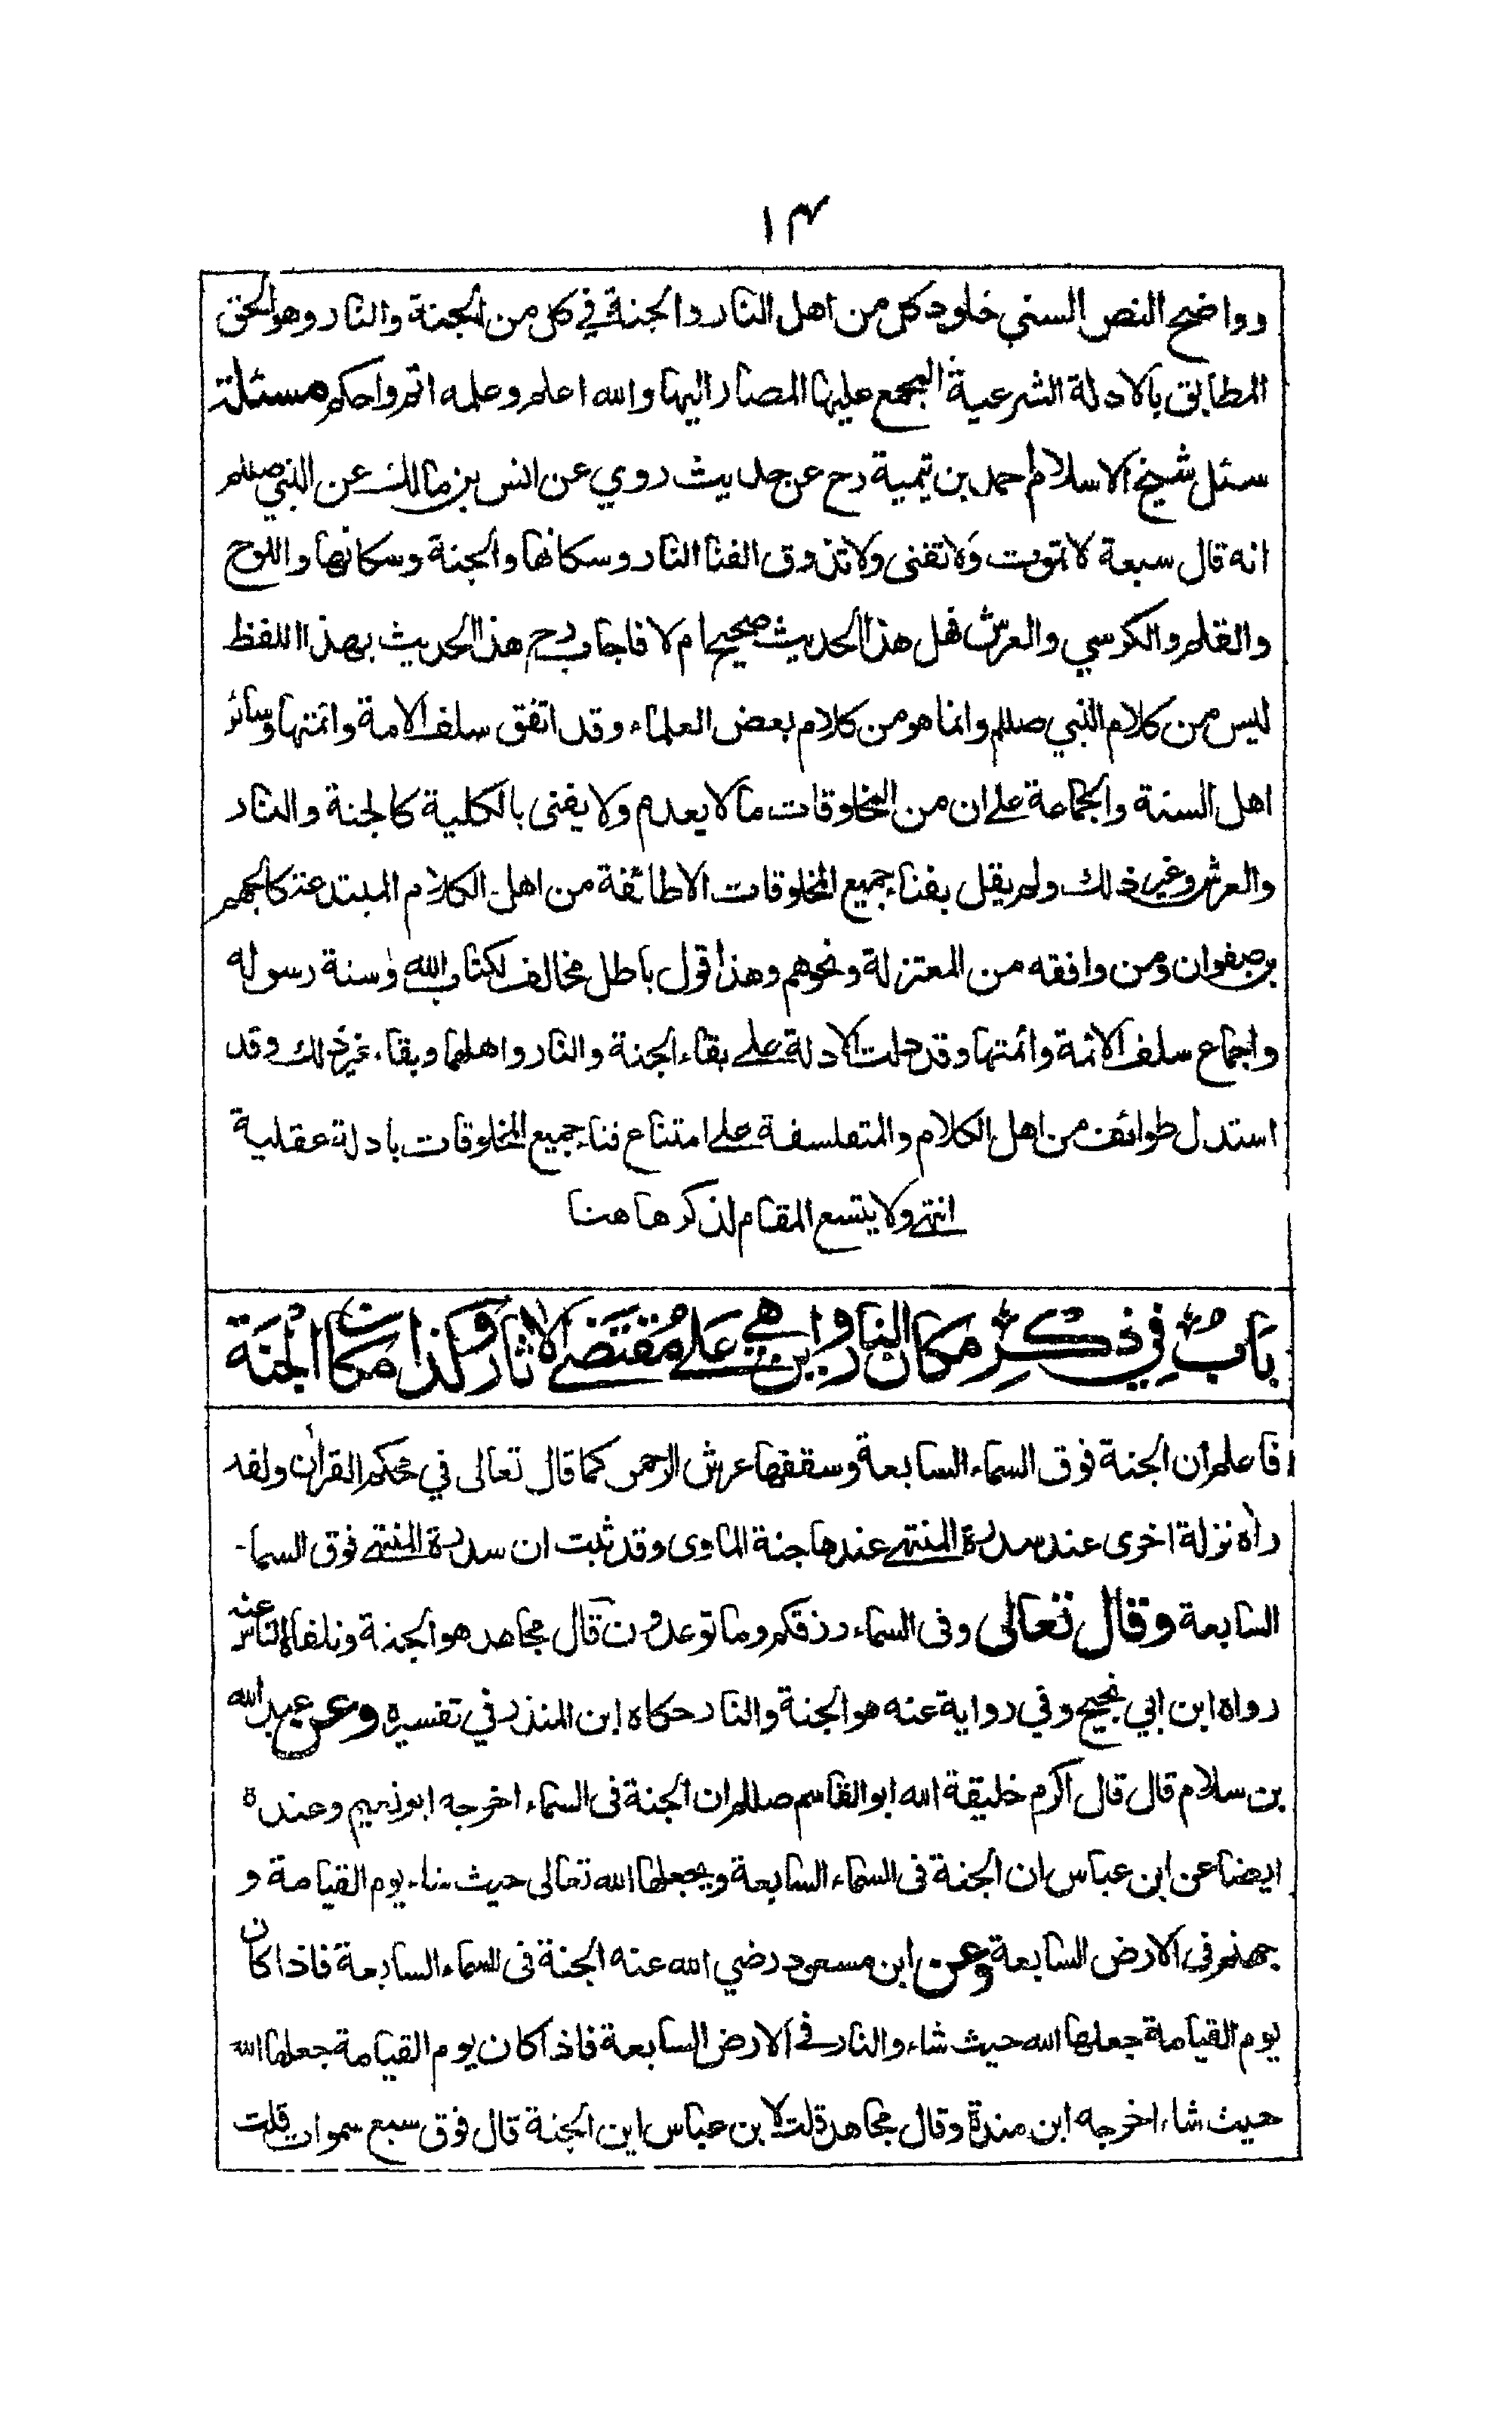 ١٣
وواضح النص السني خلود كل من اهل النار والجنة في كل من الجنة والنار وهو الحق
المطابق بالادلة الشرعية المجمع عليها المصار اليها والله اعلم وعلمه اتم واحكم مسئلة
سئل شيخ الاسلام احمد بن تيمية رح عن حديث روي عن انس بن مالك عن النبي صللم
انه قال سبعة لا تموت ولا تفنى ولا تذوق الفنا النار وسكانها والجنة وسكانها واللوح
والقلم والكرسي والعرش فهل هذا الحديث صحيح ام لا فاجاب رح هذا الحديث بهذا اللفظ
ليس من كلام النبي صللم وانما هو من كلام بعض العلماء وقد اتفق سلف الامة وائمتها وسائر
اهل السنة والجماعة على ان من المخلوقات ما لا يعدم ولا يفنى بالكلية كالجنة والنار
والعرش وغير ذلك ولم يقل بفناء جميع المخلوقات الا طائفة من اهل الكلام المبتدعة كالجهم
بن صفوان ومن وافقه من المعتزلة ونحوهم وهذا قول باطل مخالف لكتاب الله وسنة رسوله
واجماع سلف الائمة وائمتها وقد دلت الادلة على بقاء الجنة والنار واهلهما وبقاء غير ذلك وقد
استدل طوائف من اهل الكلام والمتفلسفة على امتناع فناء جميع المخلوقات بادلة عقلية
انتهى ولا يتسع المقام لذكرها هنا
بَابٌ فِي ذكرِ مكان النار واين هي عَلى مُقتَضى الاثار وكذا مكان الجنَة
فاعلم أن الجنة فوق السماء السابعة وسقفها عرش الرحمن كما قال تعالى في محكم القرآن ولقد
رآه نزلة اخرى عند سدرة المنتهى عندها جنة الماوى وقد ثبت ان سدرة المنتهى فوق السماء
السابعة وقال تعالى وفى السماء رزقكم وما توعدون قال مجاهد هو الجنة وتلقاه الناس عنه
رواه ابن ابي نجيح وفي رواية عنه هو الجنة والنار حكاه ابن المنذر في تفسيره وعن عبد الله
بن سلام قال قال اكرم خليقة الله ابو القاسم صللم ان الجنة فى السماء اخرجه ابو نعيم وعنده
ايضا عن ابن عباس ان الجنة فى السماء السابعة ويجعلها الله تعالى حيث شاء يوم القيامة و
جهنم فى الارض السابعة وعن ابن مسعود رضي الله عنه الجنة فى السماء السابعة فاذا كان
يوم القيامة جعلها الله حيث شاء والنار في الارض السابعة فاذا كان يوم القيامة جعلها الله
حيث شاء اخرجه ابن مندة وقال مجاهد قلت لابن عباس اين الجنة قال فوق سبع سموات قلت